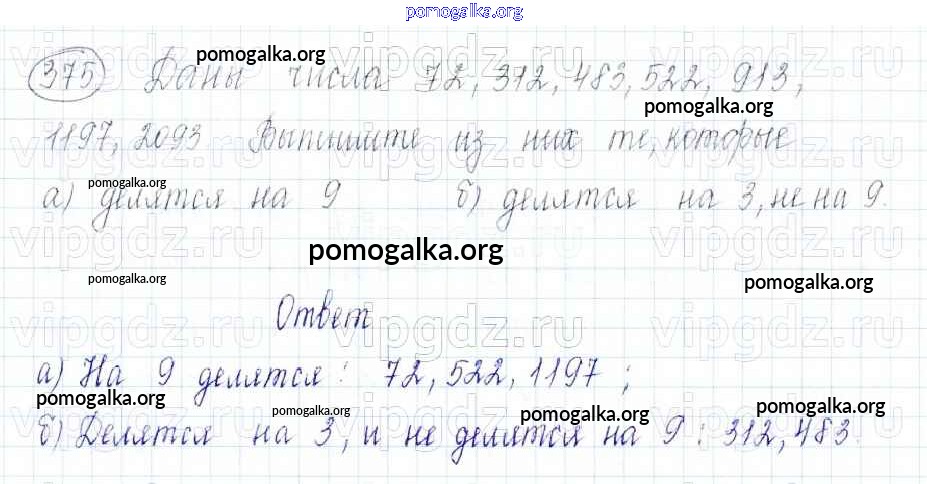 pomogalka.org
375 Даны числа 72, 312, 483, 522, 913,
pomogalka.org
pomogalka.org
1197, 2093 Выпишите из них те, которые
pomogalka.org
а) делятся на 9 б) делятся на 3, не на 9.
vipgdz.ru vipgdz.ru vipgdz.ru
pomogalka.org
pomogalka.org
pomogalka.org
Ответ
vipgdz.ru vipgdz.ru vipgdz.ru
а) На 9 делятся: 72, 522, 1197;
pomogalka.org pomogalka.org pomogalka.org pomogalka.org
б) Делятся на 3, и не делятся на 9: 312, 483.